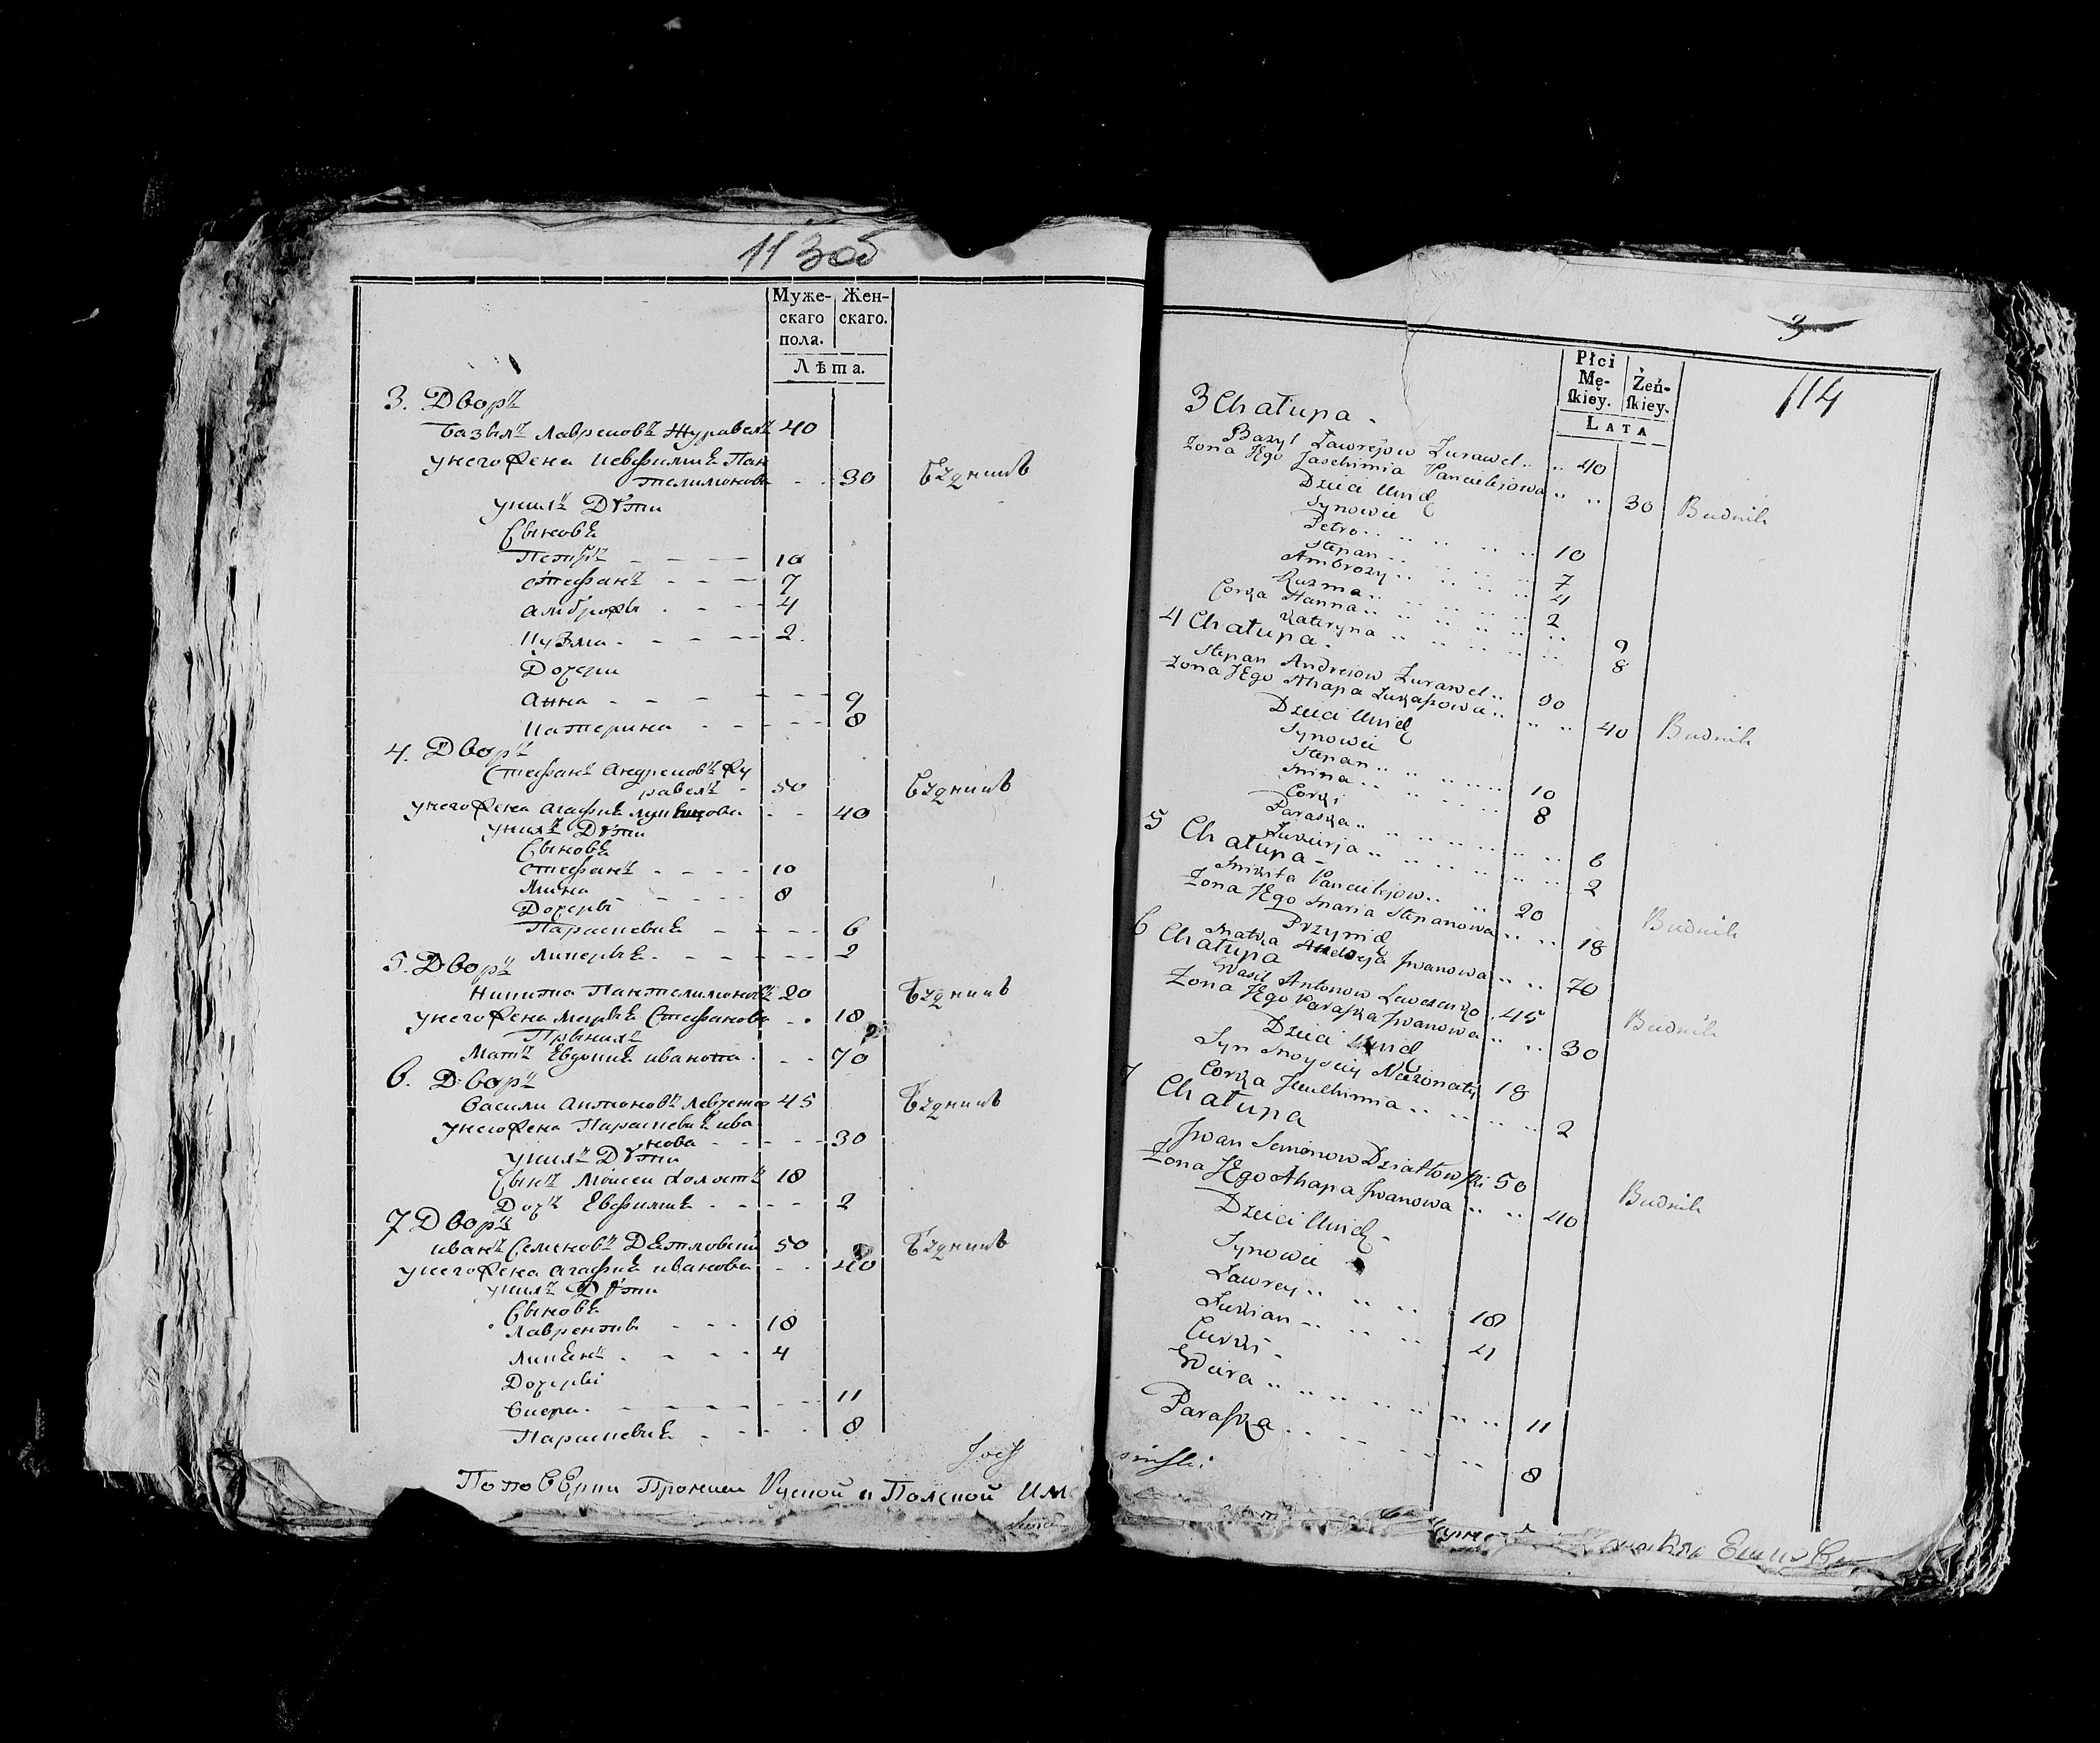 113об
Муже- Жен-
скаго скаго.
пола.
Лѣта.
3. Дворъ
Базылъ Лавреновъ Журавелъ 40
унего жена Иевфимиѣ Пан
телимонова 30 Будникъ
унихъ Дѣти
Сыновѣ
Петръ 10
Стефанъ 7
Амброжы 4
Кузма 2
Дочери
Анна 9
Катерина 8
4. Дворъ
Стефанъ Андреновъ Жу
равелъ 50 Будникъ
унего жена Агафиѣ 40
унихъ Дѣти
Сыновѣ
Стефанъ 10
Мина 8
Дочеры
Параскевиѣ 6
2
5. Дворъ
Никита Пантелимоновъ 20 Будникъ
унего жена Марыѣ Стефанова 18
Прынихъ
Матъ Евдокиѣ иванова 70
6. Дворъ
Васили Антоновъ Левченко 45 Будникъ
унего жена Параскевиѣ ива
нова 30
унихъ Дѣти
Сынъ Моисеи холостъ 18
Дочъ Евфимиѣ 2
7 Дворъ
иванъ Семеновъ Дѣтловский 50 Будникъ
унего жена Агафиѣ иванова 40
унихъ Дѣти
Сыновѣ
Лаврентий 18
4
Дочеры
Виера 11
Параскевиѣ 8
Руской и Полской
3
114
Płci Żeń-
Mę- skiey.
skiey.
LATA
3 Chałupa
Bazyl Ławrejow Żurawel 40
Żona Jego Jaschimia Pancilejowa 30 Budnik
Dzieci Unich
Synowie
Petro 10
Stepan 7
Ambrozy 4
Kuzma 2
Corka Hanna 9
Kateryna 8
4 Chałupa
Stepan Andreiow Żurawel 50
Żona Jego Ahapa Łukaszowa 40 Budnik
Dzieci Unich
Synowie
Stepan 10
Mina 8
Corki
Paraska 6
Łukierja 2
5 Chałupa
Mikita Pancilejow 20 Budnik
Żona Jego Maria Stepanowa 18
Przynich
Matka Iwanowa 70
6 Chałupa
Wasil Antonow Lewczenko 45 Budnik
Żona Jego Paraska Iwanowa 30
Dzieci Unich
Syn Moysiey Nieżonaty 18
Corka Jeuchimia 2
7 Chałupa
Iwan Semenow Dziatłowski 50
Żona Jego Ahapa Iwanowa 40 Budnik
Dzieci Unich
Synowie
Ławrey 18
Łukian 4
Curki
Wiera 11
Paraska 8